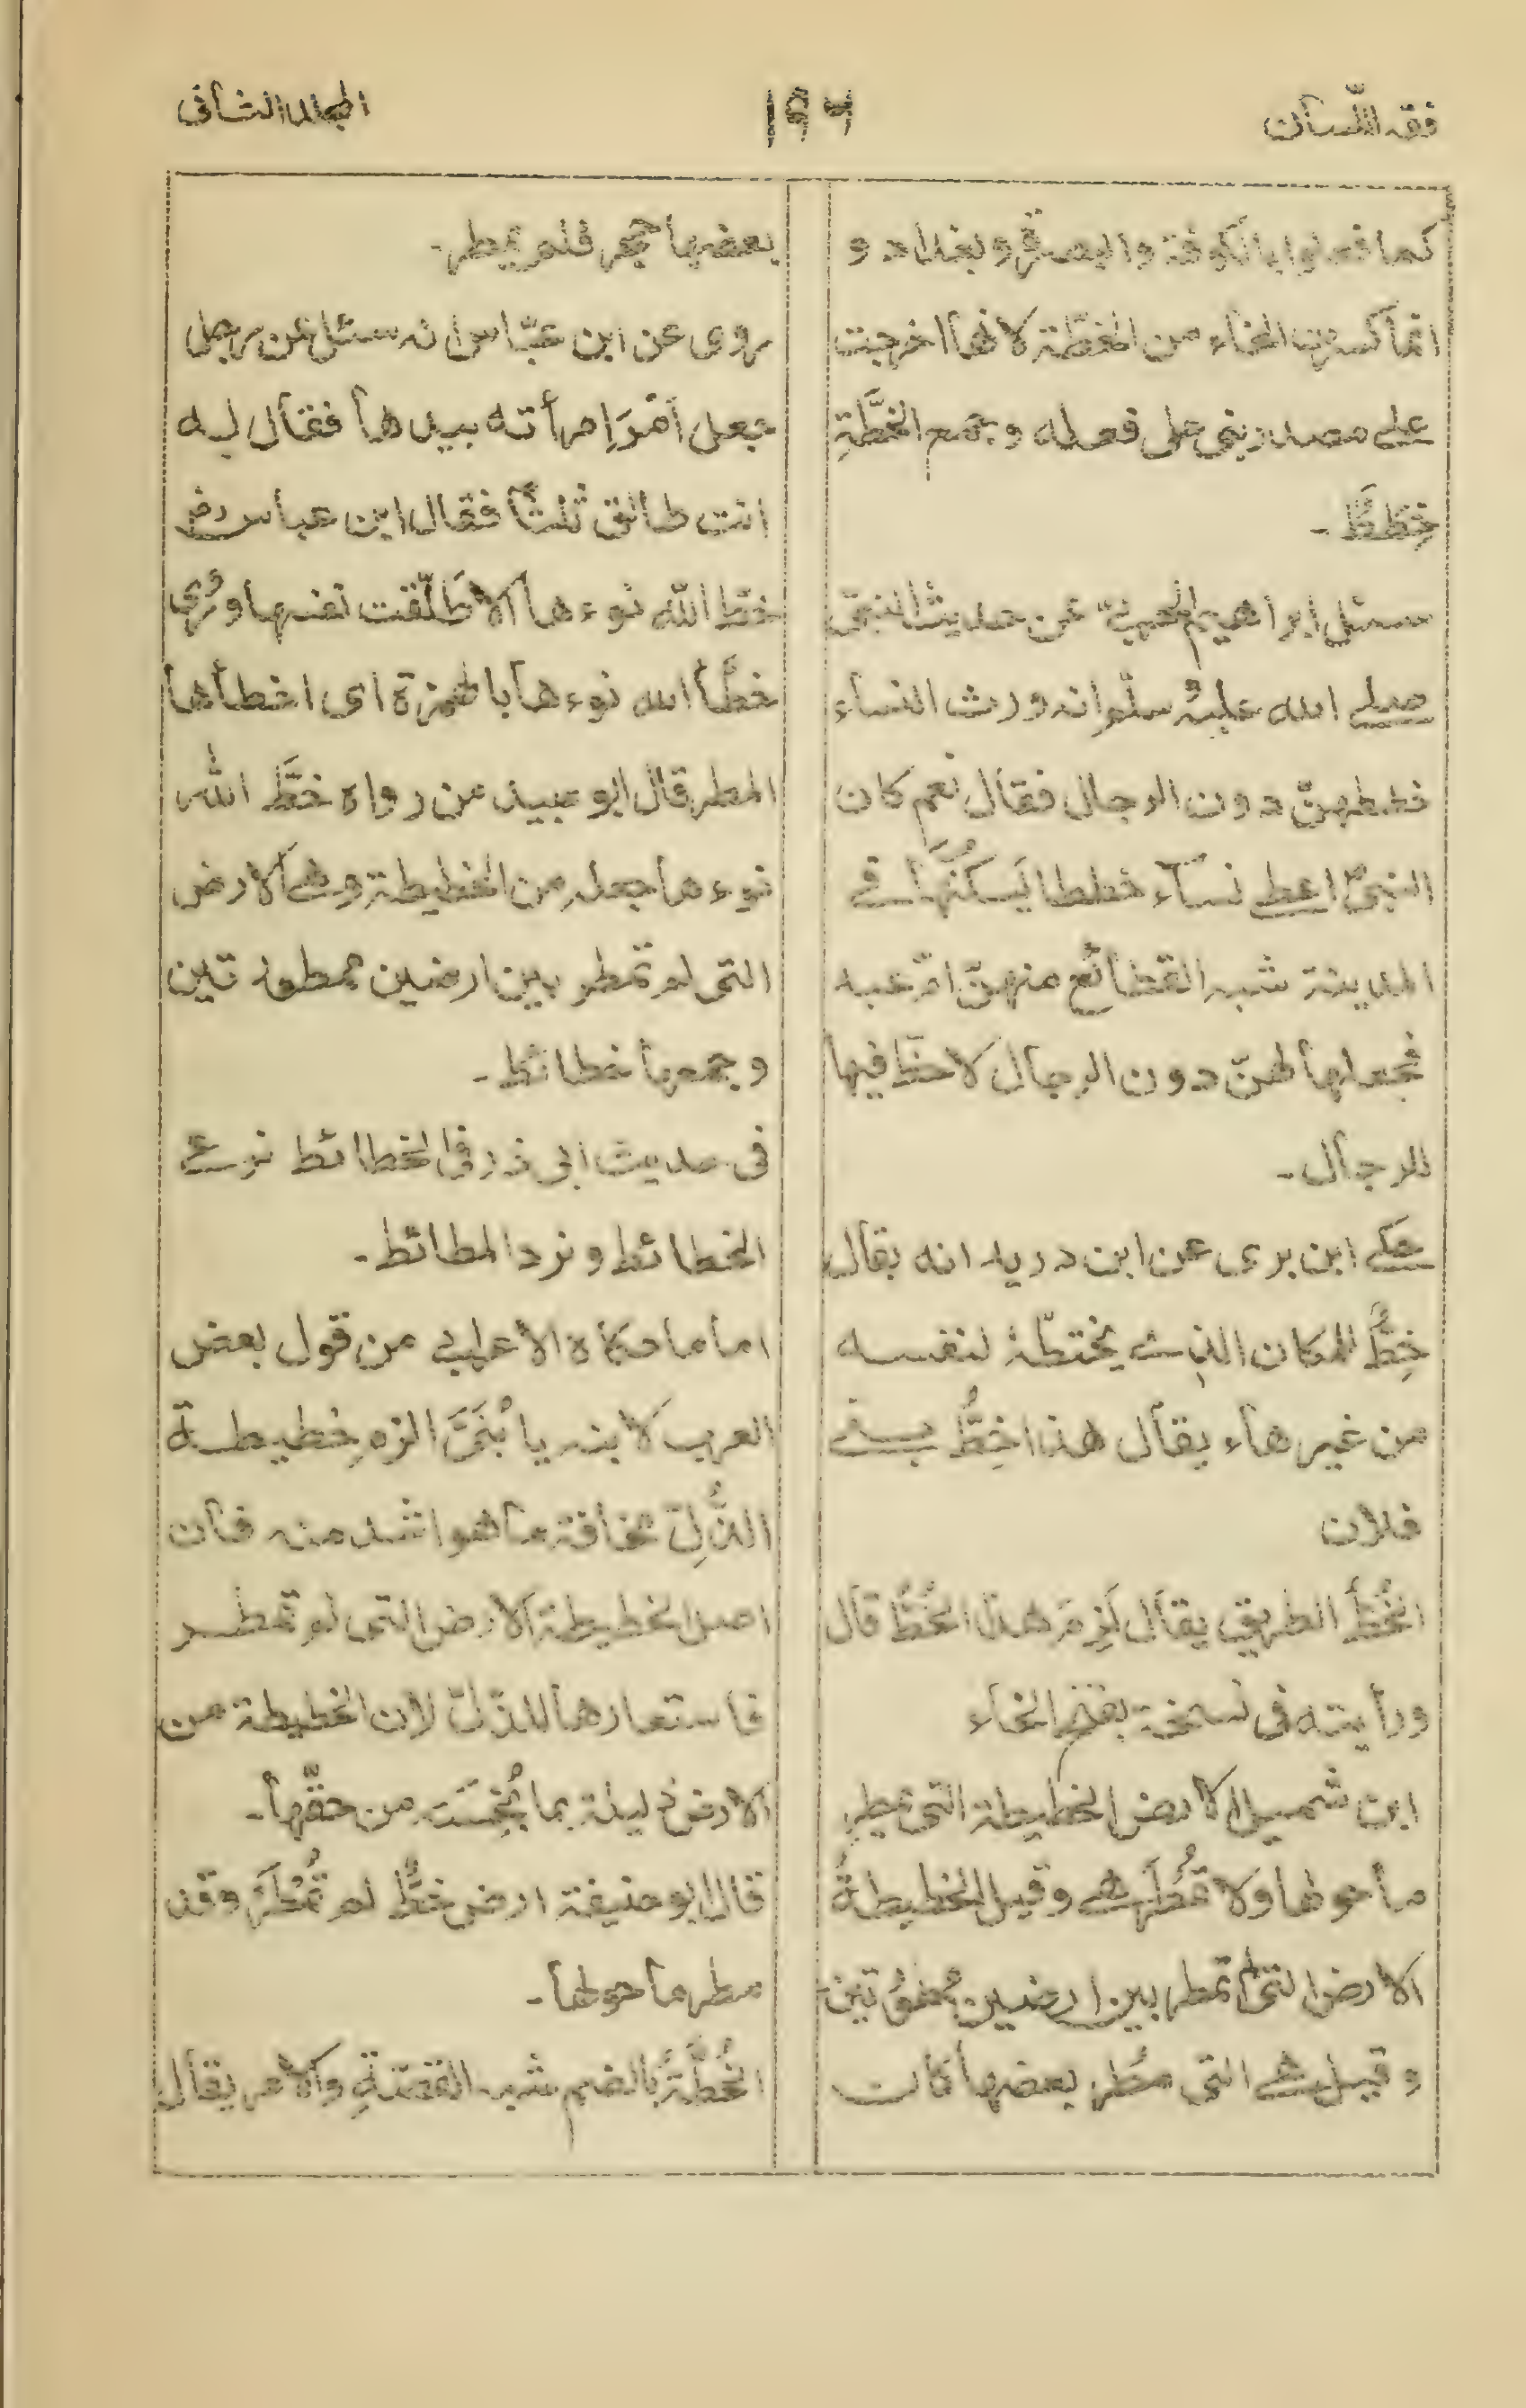 فقه اللّسان
١٩٦
المجلد الثانى
كما فعلوا بالكوفة والبصرة وبغداد و
انما كسرت الخاء من الخطّة لانها اخرجت
على مصدر بنى على فعله وجمع الخِطَّةِ
خِطَطٌ ـ
سئل ابراهيم الحربىّ عن حديث النبىّ
صلى الله عليه وسلّم انه ورث النساء
خططهنّ دون الرجال فقال نعم كان
النبىّ اعطى نساء خططا يَسكُنَّها فى
المدينة شبه القطائع منهنّ امّ عبد
فجعلها لهنّ دون الرجال لا حظّ فيها
للرجال ـ
حكى ابن برى عن ابن دريد انه يقال
خِطٌّ للمكان الذى يختطّهٗ لنفسه
من غير هاء يقال هذا خِطُّ بنى
فلان
الخُطُّ الطريق يقال لَزِمَ هذا الخُطَّ قال
ورأيته فى نسخة بفتح الخاء
ابن شميل الارض الخطيطة التى يمطر
ما حولها ولا تُمْطَر هى وقيل الخطيطةُ
الارض التى لم تمطر بين ارضين ممطورتين
وقيل هى التى مُطر بعضها كانت
بعضها حجر فلم يمطر ـ
روى عن ابن عبّاس انه سئل عن رجل
جعل امْرَ امرأته بيدها فقال له
انت طالق ثلثاً فقال ابن عباس رض
خطّ الله نوءها الا طَلّقت نفسها ورُوِى
خطَّأ الله نوءها بالهمزة اى اخطأها
المطر قال ابو عبيد من رواه خطَّ الله
نوءها جعله من الخطيطة وهى الارض
التى لم تمطر بين ارضين ممطورتين
وجمعها خطائط ـ
فى حديث ابى ذر فى الخطائط نرعى
الخطائط ونرد المطائط ـ
اما ما حكاه الأعرابى من قول بعض
العرب لابنه يا بُنَىَّ الزم خطيطة
الذُّلِّ مخافة ما هو اشد منه فان
اصل الخطيطة الارض التى لم تمطر
فاستعارها للذّلّ لان الخطيطة من
الارض ذليلة بما بُخِسَتْه من حقّها ـ
قال ابو حنيفة ارض خطٌّ لم تُمْطَرْ وقد
مطر ما حولها ـ
الخُطَّةُ بالضم شبه القصّةِ والامر يقال